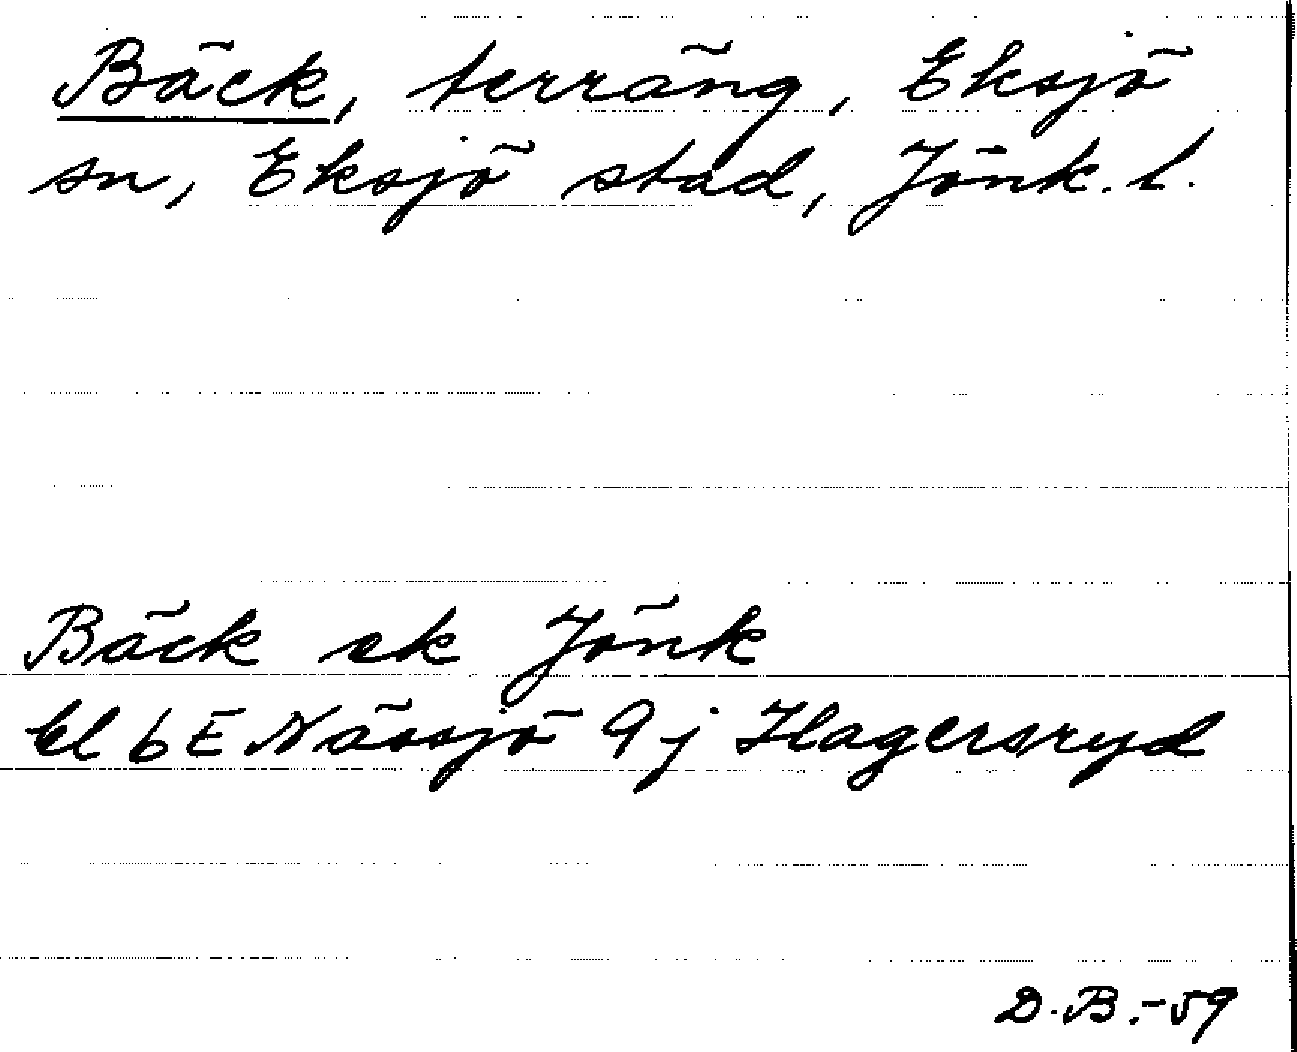 Bäck, terräng, Eksjö
sn, Eksjö stad, Jönk. l.
Bäck ek Jönk
bl 6E Nässjö 9j Hagersryd
D.B.-59